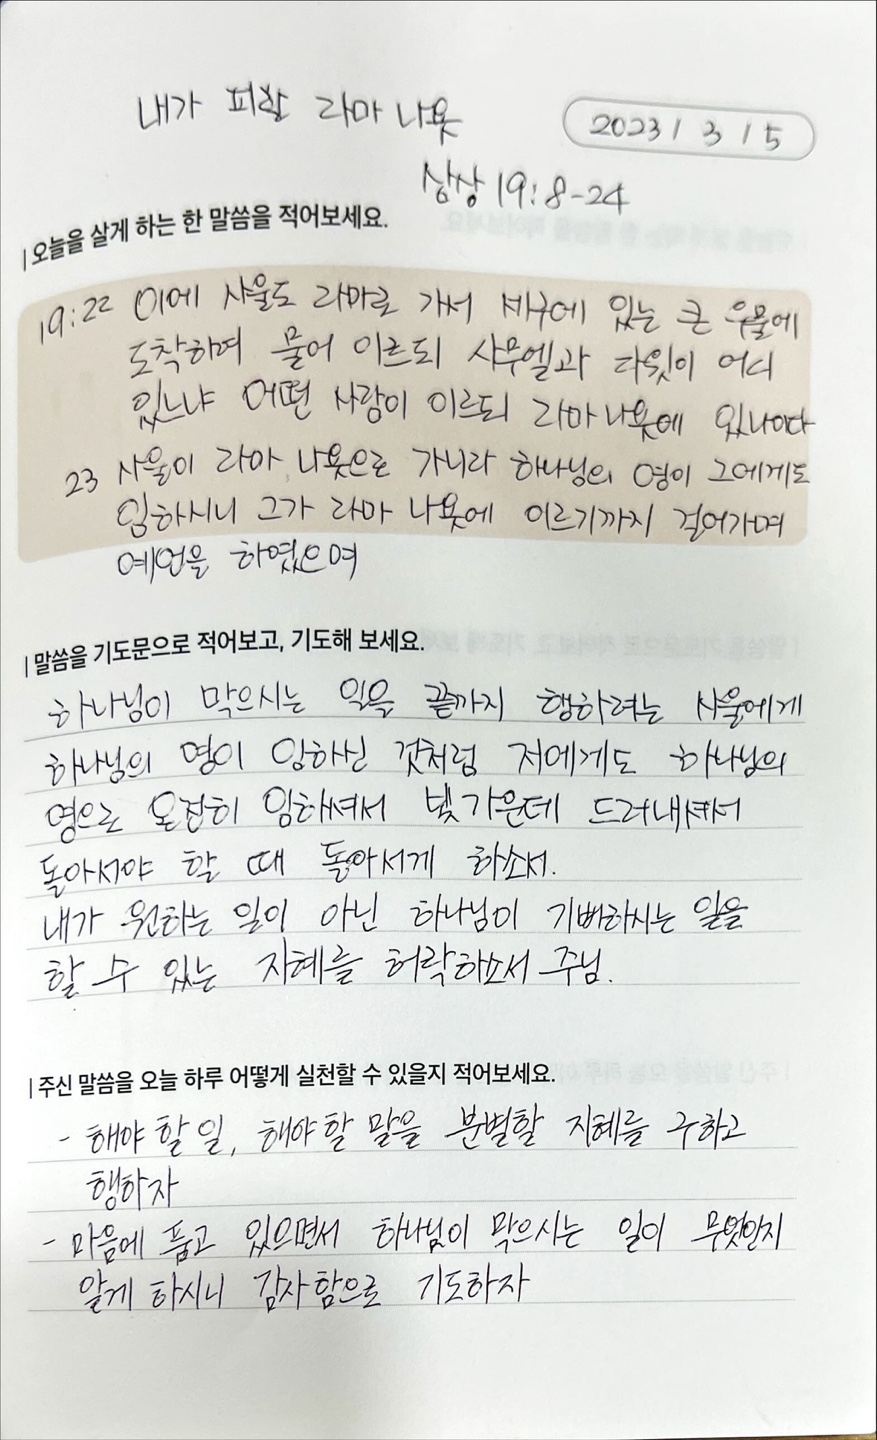 내가 피할 라마 나욧
2023 / 3 / 15
삼상 19:8-24
오늘을 살게 하는 한 말씀을 적어보세요.
19:22 이에 사울도 라마로 가서 세구에 있는 큰 우물에
도착하며 물어 이르되 사무엘과 다윗이 어디
있느냐 어떤 사람이 이르되 라마 나욧에 있나이다
23 사울이 라마 나욧으로 가니라 하나님의 영이 그에게도
임하시니 그가 라마 나욧에 이르기까지 걸어가며
예언을 하였으며
말씀을 기도문으로 적어보고, 기도해 보세요.
하나님이 막으시는 일을 끝까지 행하려는 사울에게
하나님의 영이 임하신 것처럼 저에게도 하나님의
영으로 온전히 임하셔서 빛 가운데 드러내셔서
돌아서야 할 때 돌아서게 하소서.
내가 원하는 일이 아닌 하나님이 기뻐하시는 일을
할 수 있는 지혜를 허락하소서 주님.
주신 말씀을 오늘 하루 어떻게 실천할 수 있을지 적어보세요.
- 해야 할 일, 해야 할 말을 분별할 지혜를 구하고
행하자
- 마음에 품고 있으면서 하나님이 막으시는 일이 무엇인지
알게 하시니 감사함으로 기도하자